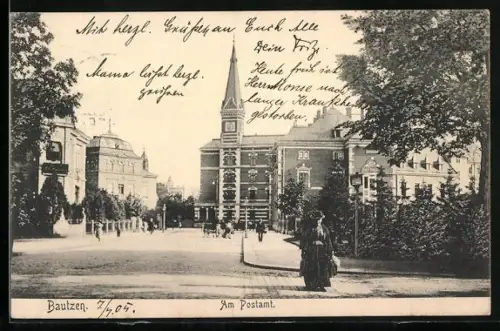 Mit herzl. Grüßen an Euch Alle
Dein Fritz.
Mama läßt herzl.
grüßen
Heute früh ist
Herr nach
langer Krankheit
gestorben
Bautzen. 7/7.05.
Am Postamt.